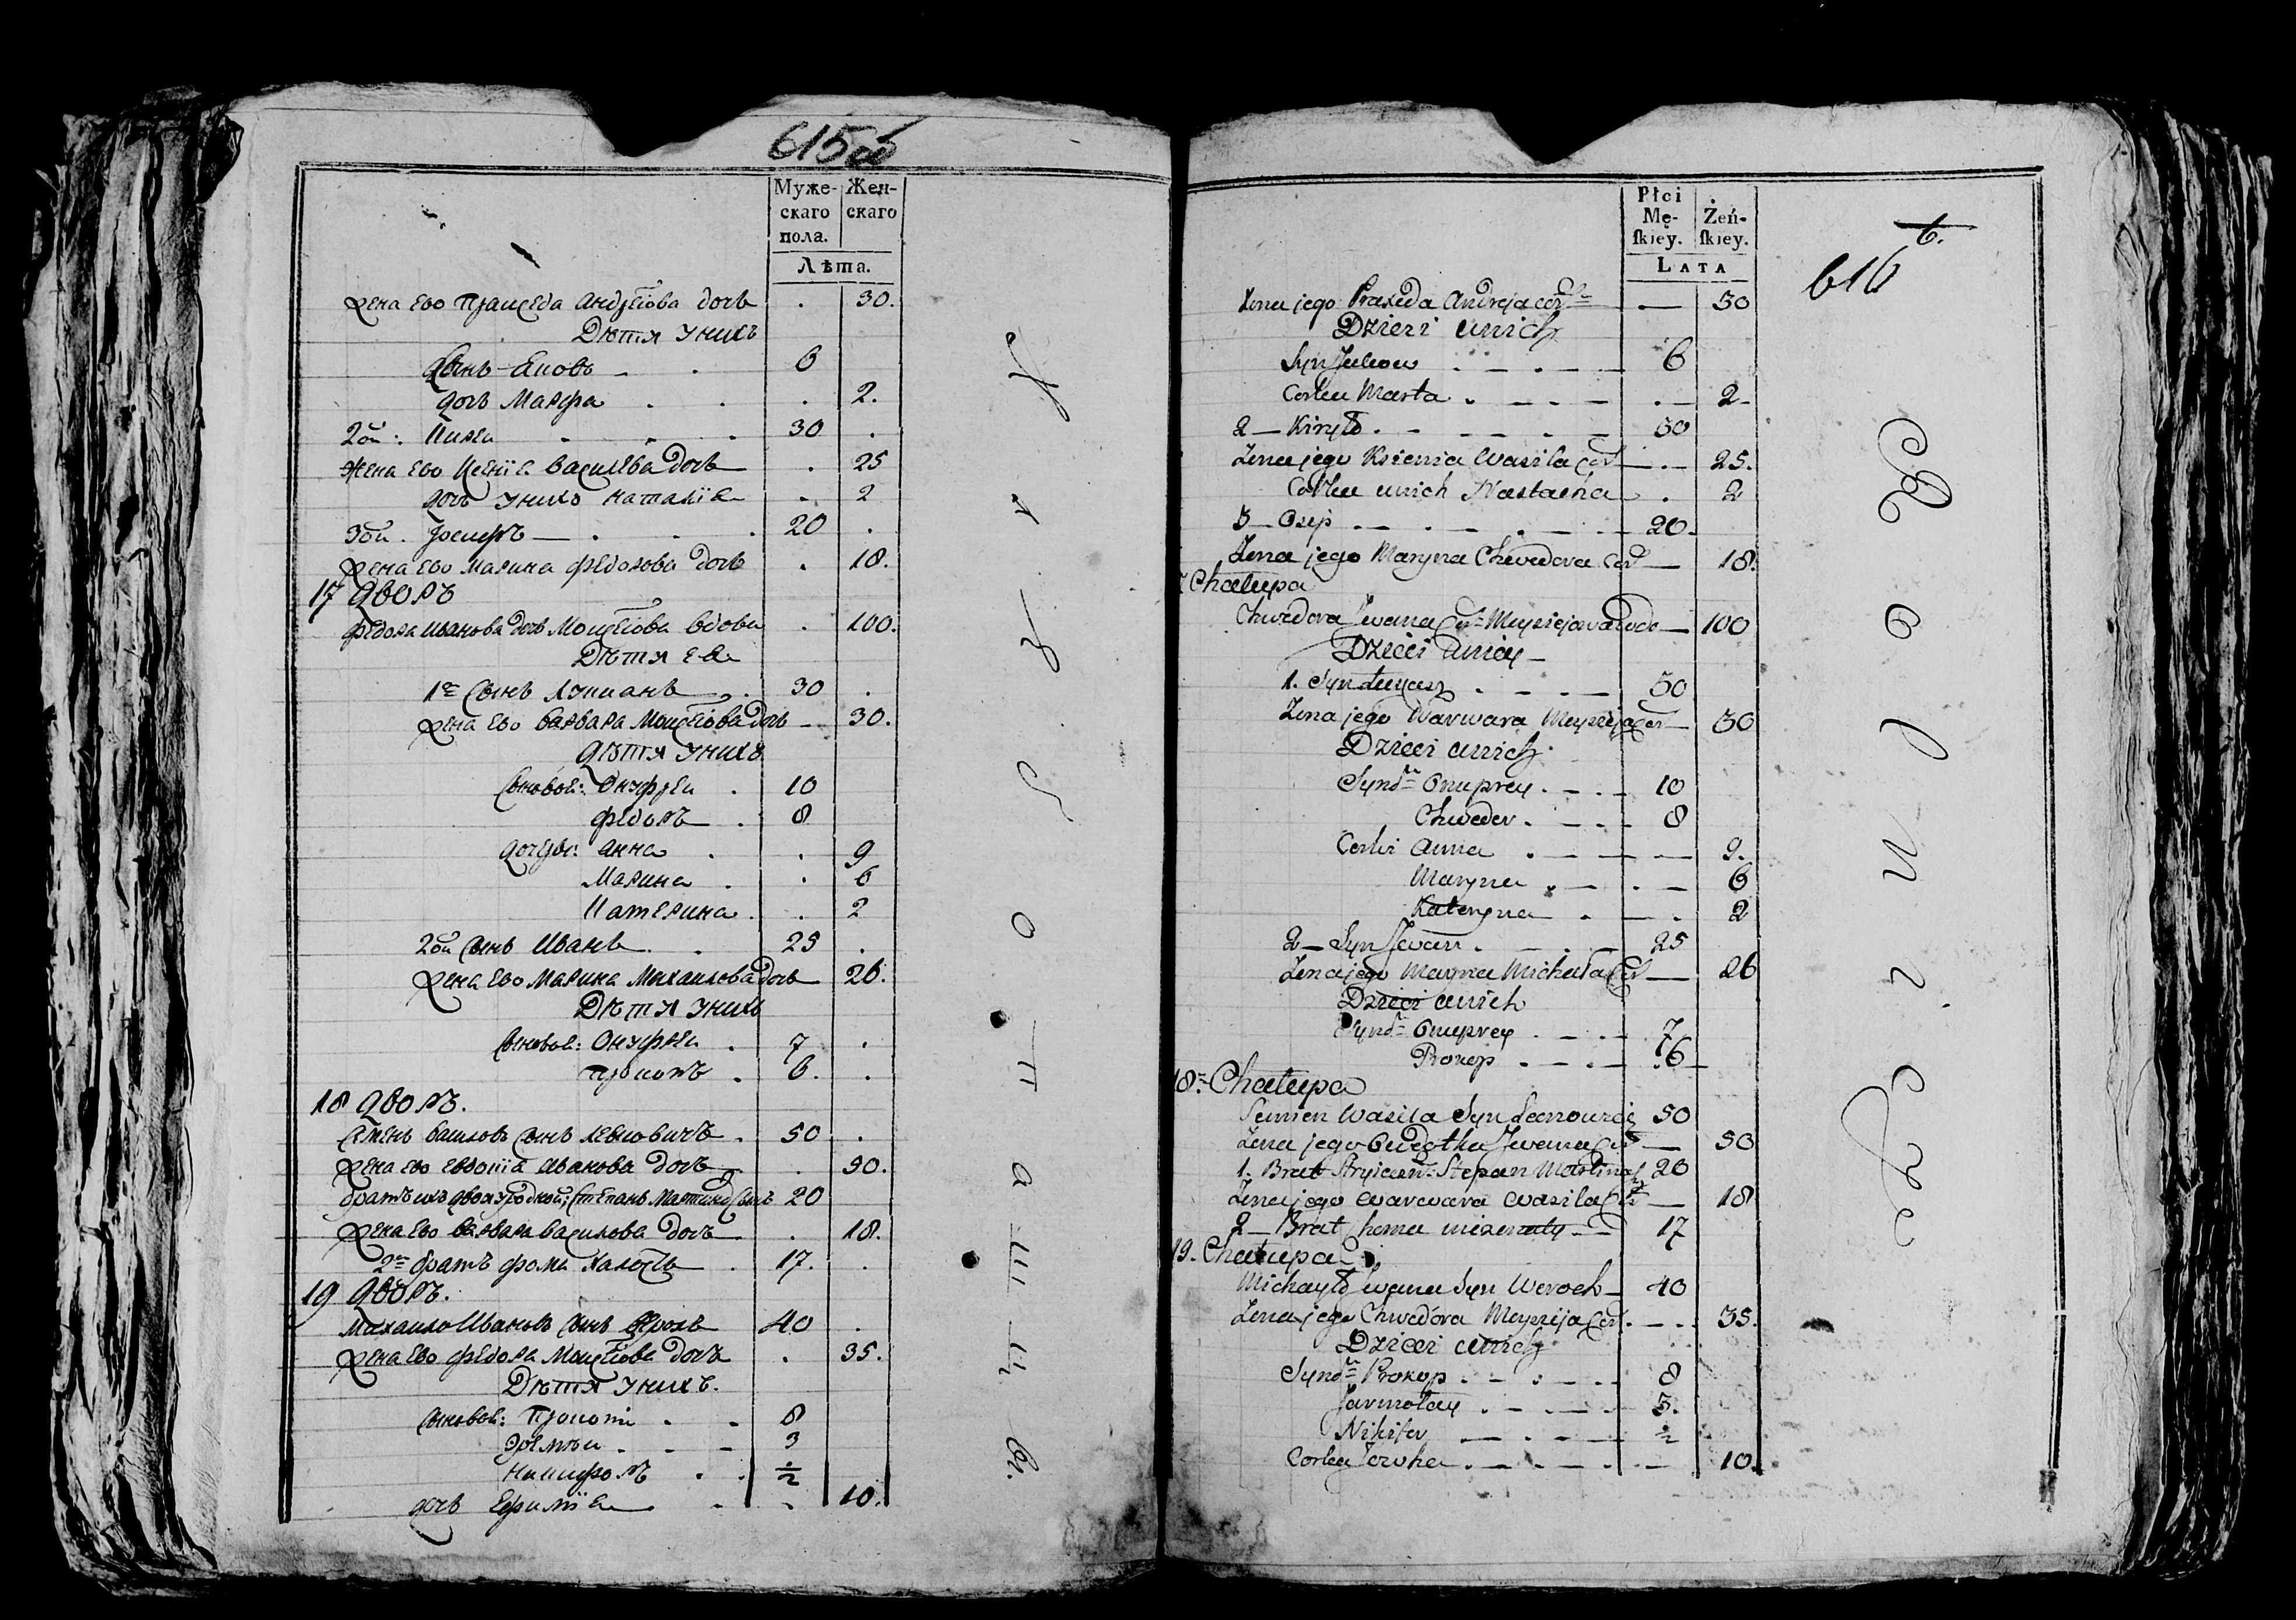 615об
Муже- Жен-
скаго скаго
пола.
Лѣта.
Жена ево Праѯеда Андрѣева дочь . 30.
Дѣтя у нихъ
Сынъ Яковъ 6
дочь Марфа . 2.
2ой: Кирѣи 30 .
Жена ево Ксѣнiя Васильева дочь . 25
дочь у нихъ Наталiя . 2
3ой. Iосифъ 20 .
Жена ево Марина Федорова дочь . 18.
17 дворъ
Федора Иванова дочь Мойсѣева вдова . 100.
Дѣтя ея
1й Сынъ Лукианъ 30 .
Жена ево Варвара Мойсѣева дочь 30.
дѣтя у нихъ
Сыновья: Онуфрѣи 10
Федоръ 8
дочери: Анна . 9
Марина . 6
Катерина . 2
2ой Сынъ Иванъ 25 .
Жена ево Марина Михаилова дочь 26.
Дѣтя у нихъ
Сыновья: Онуфрѣи 7 .
Прокопъ 6. .
18 дворъ.
Семенъ Василовъ Сынъ 50 .
Жена ево Евдокiя Иванова дочь . 50.
братъ ихъ двоюродной: Степанъ Мартина Сынъ 20
Жена ево Варвара Василова дочь . 18.
2й братъ Фома 17. .
19 дворъ.
Михаило Ивановъ Сынъ 40 .
Жена ево Федора Мойсѣева дочь . 35.
Дѣтя у нихъ.
Сыновья: Прокопi 8
3
Никифоръ 1/2
дочь Ефимiя . 10.
Płci
Mę- Żeń-
ſkiey. ſkiey.
LATA
t.
616
Żona jego Praxeda Andreja cór. 30
Dzieci unich
Syn Jakow 6
Corka Marta 2
2 Kiryło 30
Żona jego Ksienia Wasila Cór 25.
Corka unich Nastazia 2
3 Osep 20.
Żona jego Maryna Chwedora Cór 18.
Chałupa
Chwedora Iwana Cór. Moysiejowa wdo 100
Dzieci u niey
1. Syn Łukasz 30
Żona jego Warwara Moysieja Cór 30
Dzieci unich
Syno. Onuprey 10
Chweder 8
Corki Anna 9.
Maryna 6
Kateryna 2
2 Syn Iwan 25
Żona jego Maryna Michała Cór 26
Dzieci unich
Syno. Onuprey 7
Prokop 6
18. Chałupa
Semien Wasila Syn 50
Żona jego Owdotka Iwana Cór 50
1. Brat Stryieczn. Stepan Martina S. 20
Żona jego Warwara Wasila Cór 18
2 Brat homa nieżenaty 17
19. Chałupa
Michayło Iwana Syn Woroch 40
Żona jego Chwedora Moysieja Cór. 35.
Dzieci unich
Syno. Prokop 8
Jarmołay 3.
Nikifor 1/2
Corka 10.